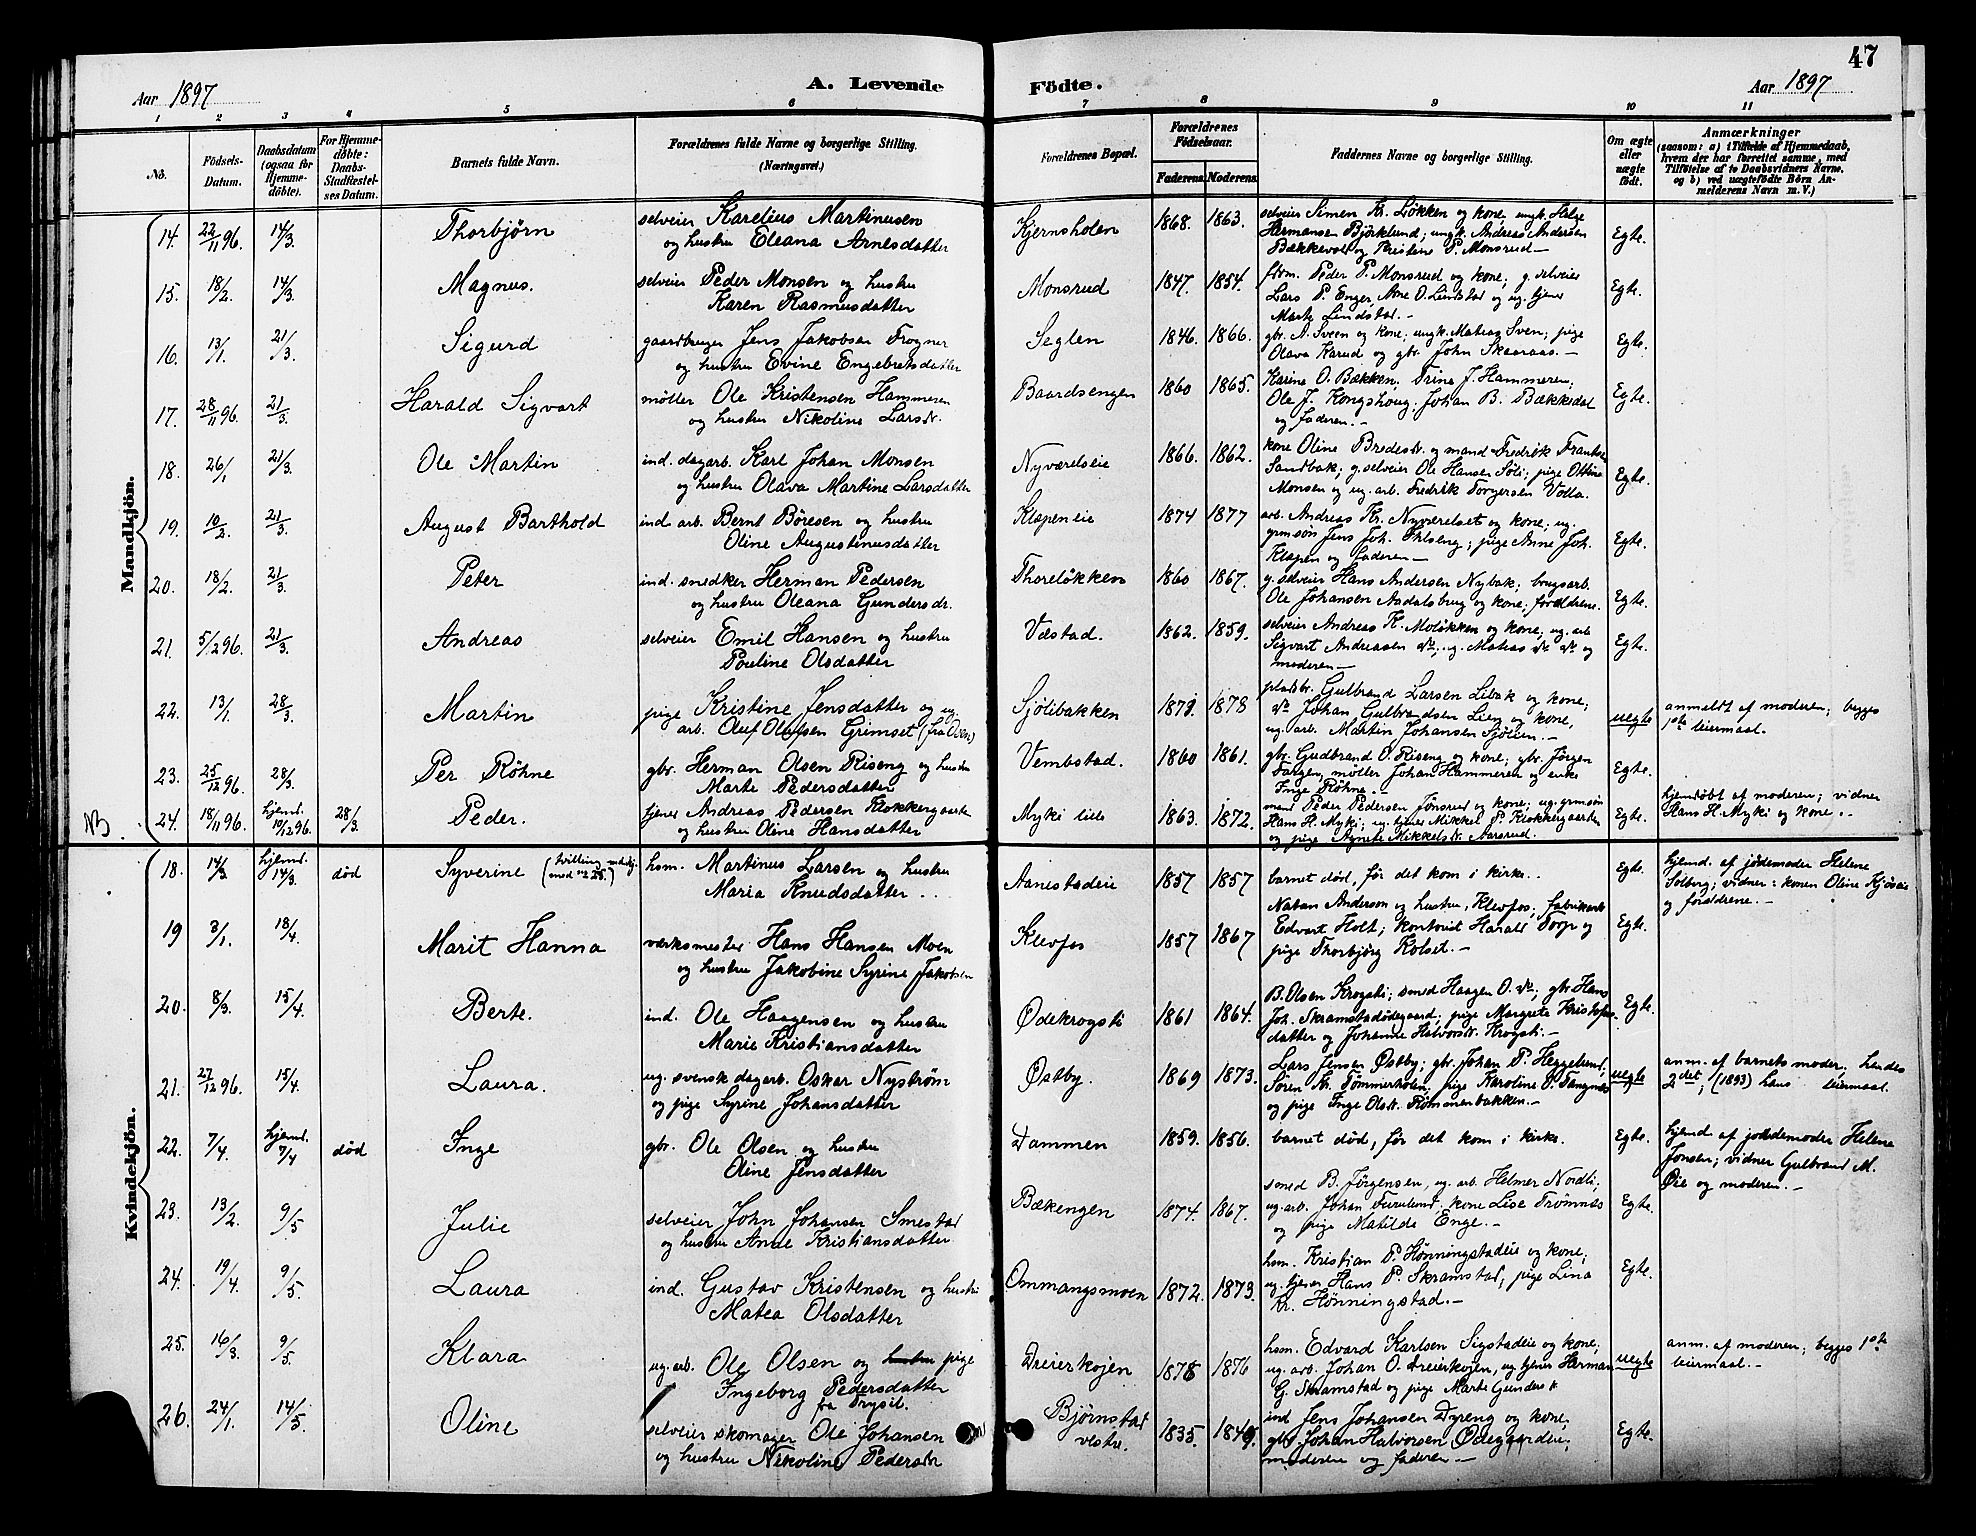 47
Aar 1897
A. Levende
Födte.
Aar 1897
1 2 3 4 5 6 7 8 9 10 11
No.
Födsels-Datum.
Daabsdatum (ogsaa for Hjemme-döbte).
For Hjemme-döbte: Daabs-Stadfæstel-ses Datum.
Barnets fulde Navn.
Forældrenes fulde Navne og borgerlige Stilling. (Næringsvei.)
Forældrenes Bopæl.
Forældrenes Födselsaar.
Faderens. Moderens.
Faddernes Navne og borgerlige Stilling.
Om ægte eller uægte födt.
Anmærkninger
(saasom: a) i Tilfælde af Hjemmedaab,
hvem der har forrettet samme, med
Tilföielse af to Daabsvidners Navne,
og b) ved uægtefödte Börn An-
melderens Navn m. V.)
Mandkjön.
14. 22/11 96. 14/3. Thorbjørn selveier Karelius Martinusen Kjernsholen 1868. 1863. selveier Simen Kr. Løkken og kone, ungk. Helge
og hustru Eleana Arnesdatter Hermansen Bjørklund; ungk. Andreas Andersen Egte.
Bækkevol og Kristine P. Monsrud
15. 18/2. 14/3. Magnus. selveier Peder Monsen og hustru Monsrud 1847. 1854. Peder P. Monsrud og kone; g. selveier
Karen Rasmusdatter Lars P. Enger, Arne O. Lindstad og ug. tjener Egte.
Marte Lindstad.
16. 13/1. 21/3. Sigurd gaardbruger Jens Jakobsen Frogner Seglen 1846. 1866. gbr. A. Sveen og kone; ungk. Mateas Sven; pige
og hustru Evine Engebretsdatter Olava Karud og gbr. John Skaaraas. Egte.
17. 28/11 96. 21/3. Harald Sigvart möller Ole Kristensen Hammeren Baardsengen 1860 1865. Karine O. Bækken, Trine J. Hammeren;
og hustru Nikoline Larsdr. Ole J. Kongshoug. Johan B. Bækkedal Egte.
og faderen.
18. 26/1 21/3. Ole Martin ind. dagarb. Karl Johan Monsen Nyværelseie 1866. 1862. kone Oline Bredesdr. og mand Fredrik
og hustru Olava Martine Larsdatter Sandbak; g. selveier Ole Hansen Søli; pige Ottine Egte.
Monsen og ug. arb. Fredrik Torgersen Volla.
19. 10/2. 21/3. August Barthold ind. arb. Bernt Böresen og hustru Klæpen eie 1874 1877 arb. Andreas Kr. Nyværelset og kone; ug.
Oline Augustinusdatter Jens Joh. pige Anne Joh. Egte.
Klæpen og faderen
20. 18/2. 21/3. Peter ind. snedker Herman Pedersen Thoreløkken 1860 1867. g. selveier Hans Andersen Nybak; brugsarb.
og hustru Oleana Gundersdr. Ole Johansen Aadalsbrug og kone; forældrene. Egte.
21. 5/12 96. 21/3. Andreas selveier Emil Hansen og hustru Vestad. 1862. 1859. selveier Andreas K. Moløkken og kone; ug. arb
Pouline Olsdatter Sigvart Andreassen do; ug. Mateas do do og Egte.
moderen
22. 13/1. 28/3. Martin pige Kristine Jensdatter og ug. Sjölibakken 1878 pladsbr. Gulbrand Larsen Libak og kone; anmeldt af moderen; begges
arb. Oluf Olufsen Grimset (fra Osen) do Johan Gulbrandsen Lieg og kone, uegte 1ste leiermaal.
ug. arb. Martin Johansen Sjölien.
23. 25/12 96. 28/3. Per Röhne gbr. Herman Olsen Riseng og hustru Vembstad. 1860 1861. gbr. Gudbrand O. Riseng og kone; gbr. Jörgen
Marte Pedersdatter Farger, möller Johan Hammeren og enke Egte.
Inge Röhne.
NB. 24. 18/11 96. hjemd. 19/12 96. 28/3. Peder. tjener Andreas Pedersen Klokkergaarden Myki lille 1863. 1872. mand Peder Pedersen Jönsrud og kone; ug. grmsön hjemdöbt af moderen; vidner
og hustru Oline Hansdatter Hans H. Myki; ug. tjener Mikkel P. Klokkergaarden Egte. Hans H. Myki og kone.
og pige Agnete Mikkelsdr. Aarsrud.
Kvindekjön.
18. 14/3 hjemd. 14/3. död Syverine (tvilling med no 25.) hsm. Martinus Larsen og hustru Aanestadeie 1857 1857 barnet död, för det kom i kirke. Egte. hjemd. af jodemoder Helene
Maria Knudsdatter Solberg; vidner: konen Oline Kjöseie
og forældrene.
19 3/1. 18/4. Marit Hanna værksmester Hans Hansen Moen Klevfos 1857 1867 Natan Anderson og hustru, Klevfos; fabrikarb
og hustru Jakobine Syrine Jakobsen Edvart Holt; kontorist Harald Torp og Egte.
pige Thorbjörg Kolset.
20. 8/3. 15/4. Berte. ind. Ole Haagensen og hustru Ødekrogsti 1861 1864. B. Olsen Krogsti; smed Haagen O. do; gbr. Hans
Marie Kristiansdatter Joh. Skramstadödegaard; pige Margrete Kristofers- Egte.
datter og Johanne Halvorsdr. Krogsti.
21. 27/12 96. 15/4. Laura. ug. svensk dagarb. Oskar Nyström Østby. 1869 1873. Lars Jensen Østby; gbr. Johan P. Heggelund; anm. af barnets moder, hendes
og pige Syrine Johansdatter Sören Kr. Tömmerholen, pige Karoline P. Tangnes uegte 2det, (1893) hans leiermaal.
og pige Inge Olsdr. Römmenbakken.
22. 7/4. hjemd. 7/4 död Inge gbr. Ole Olsen og hustru Dammen 1859. 1856. barnet död, för det kom i kirke. Egte. hjemd af jordemoder Helene
Oline Jensdatter Jonsen; vidner Gulbrand M.
Öie og moderen.
23. 13/2. 9/5. Julie selveier John Johansen Smestad Bækengen 1874. 1867. smed B. Jörgensen, ug. arb. Helmer Nordli;
og hustru Anne Kristiansdatter. ug. arb. Johan Furulund, kone Lise Trömnes Egte.
og pige Matilde Enge.
24. 19/4. 9/5. Laura ind. Gustav Kristensen og hustru Ommangsmoen 1872. 1873. hsm. Kristian P. Hönningstadeie og kone;
Matea Olsdatter ug. tjener Hans P. Skramstad, pige Lina Egte.
Kr. Hönningstad.
25. 16/3. 9/5. Klara ug. arb. Ole Olsen og hustru pige Dreierkojen 1875 1876 hsm. Edvard Karlsen Sigstadeie og kone; anm. af moderen; begges 1ste
Ingeborg Pedersdatter ug. arb. Johan O. Dreierkojen, ug. tjener Herman uegte leiermaal.
fra Trysil. G. Skramstad og pige Marte Gundersdr.
26. 24/1. 14/5. Oline selveier skomager Ole Johansen Björnstad vestre. 1835. 1849. ind Jens Johansen Dyreng og kone,
og hustru Nikoline Pedersdr gbr. Johan Halvorsen Ödegaarden, Egte.
moderen og faderen